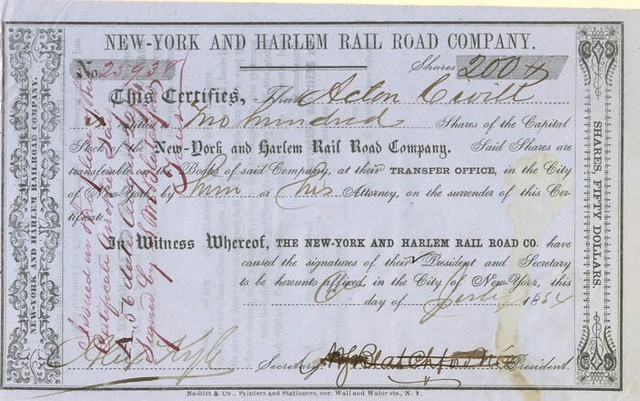 NEW-YORK AND HARLEM RAIL ROAD COMPANY.
No. 25938 Shares 200
This Certifies, That Acton Civill
is entitled to Two hundred Shares of the Capital
Stock of the New-York and Harlem Rail Road Company. Said Shares are
transferable on the Books of said Company, at their TRANSFER OFFICE, in the City
of New-York, by him or his Attorney, on the surrender of this Cer-
tificate.
In Witness Whereof, THE NEW-YORK AND HARLEM RAIL ROAD CO. have
caused the signatures of their President and Secretary
to be hereunto affixed, in the City of New-York, this
day of July 1854
Alex Kyle Secretary. President.
Nesbitt & Co., Printers and Stationers, cor. Wall and Water sts., N. Y.
NEW-YORK AND HARLEM RAILROAD COMPANY.
SHARES, FIFTY DOLLARS
Issued in place of
Certificate
Signed by